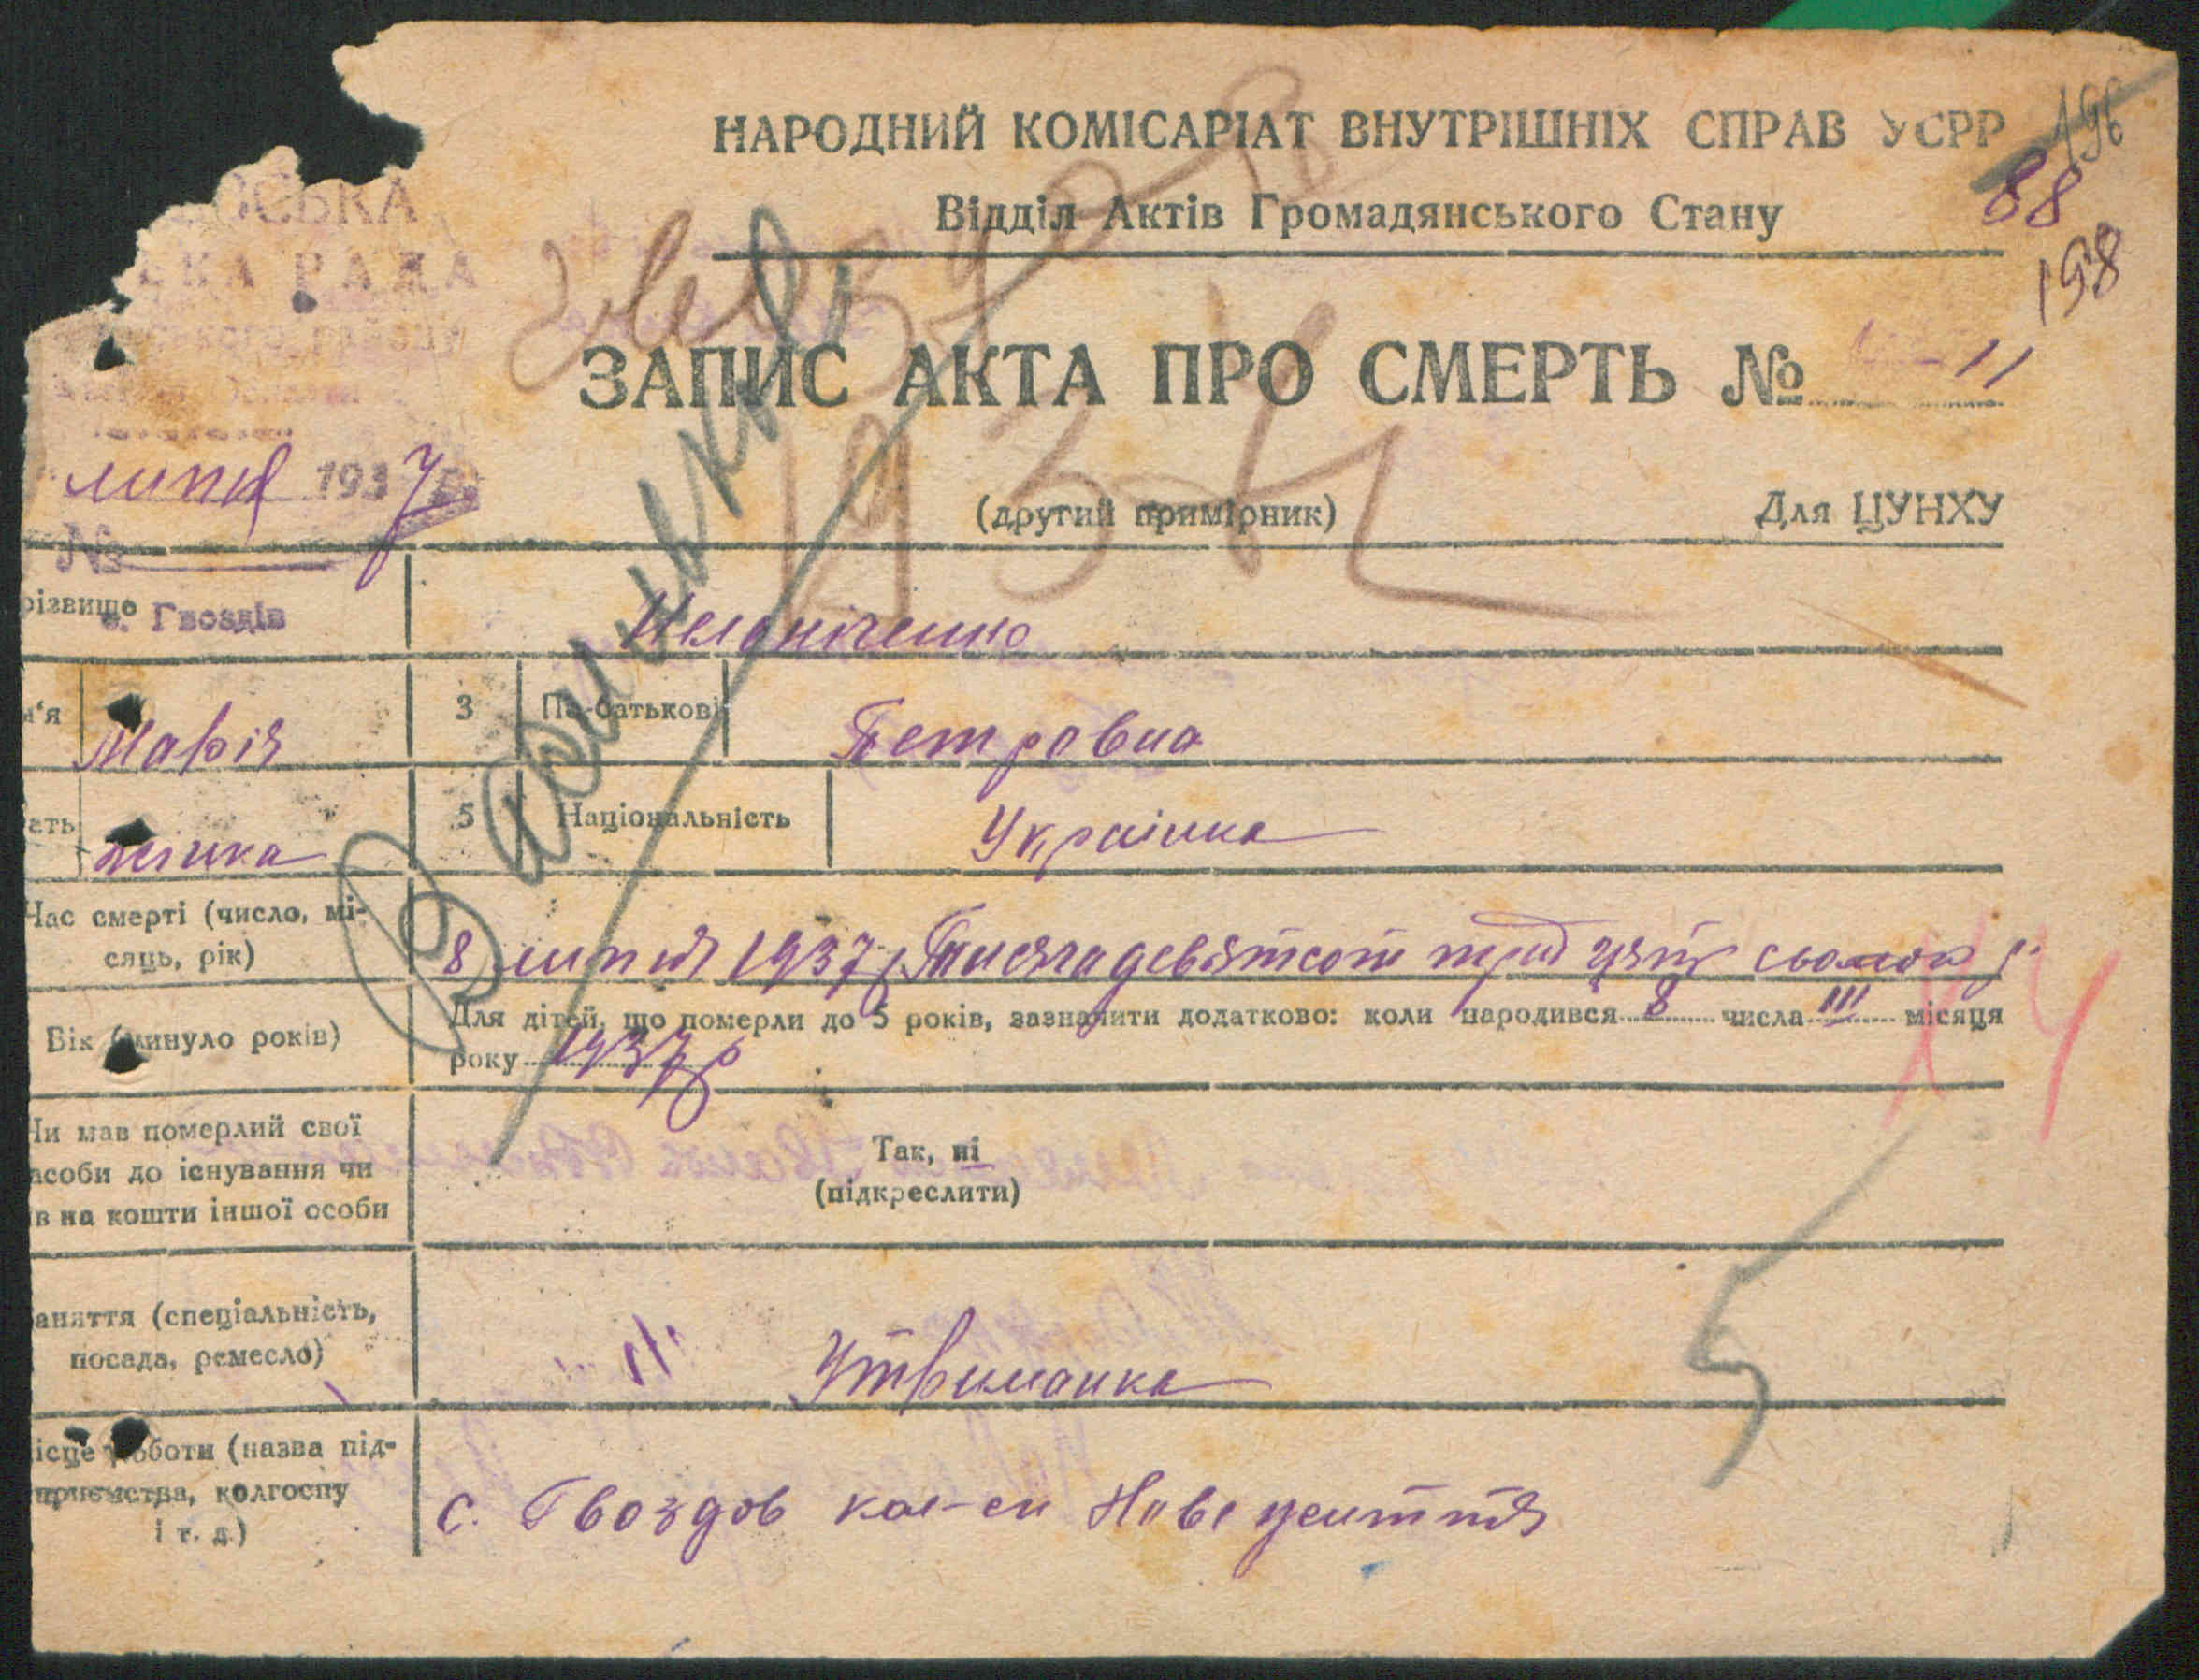 НАРОДНИЙ КОМІСАРІАТ ВНУТРІШНІХ СПРАВ УСРР
196
Відділ Актів Громадянського Стану
88
198
ОВСЬКА
СЬКА РАДА
ЗАПИС АКТА ПРО СМЕРТЬ № 11
липня 1937 р.
(другий примірник)
Для ЦУНХУ
№
різвище
с. Гвоздів
м'я
Марія
3
По-батькові
Петровна
ать
жінка
5
Національність
Українка
Час смерті (число, мі-
сяць, рік)
8 липня 1937 р. Тисяча девятсот тридцять сьомого р.
Вік (минуло років)
Для дітей, що померли до 5 років, зазначити додатково: коли народився 8 числа III місяця
року 1937 р
Чи мав померлий свої
асоби до існування чи
в на кошти іншої особи
Так, ні
(підкреслити)
аняття (спеціальність,
посада, ремесло)
Утриманка
ісце роботи (назва під-
приємства, колгоспу
і т. д.)
с. Гвоздов кол-сп Нове життя